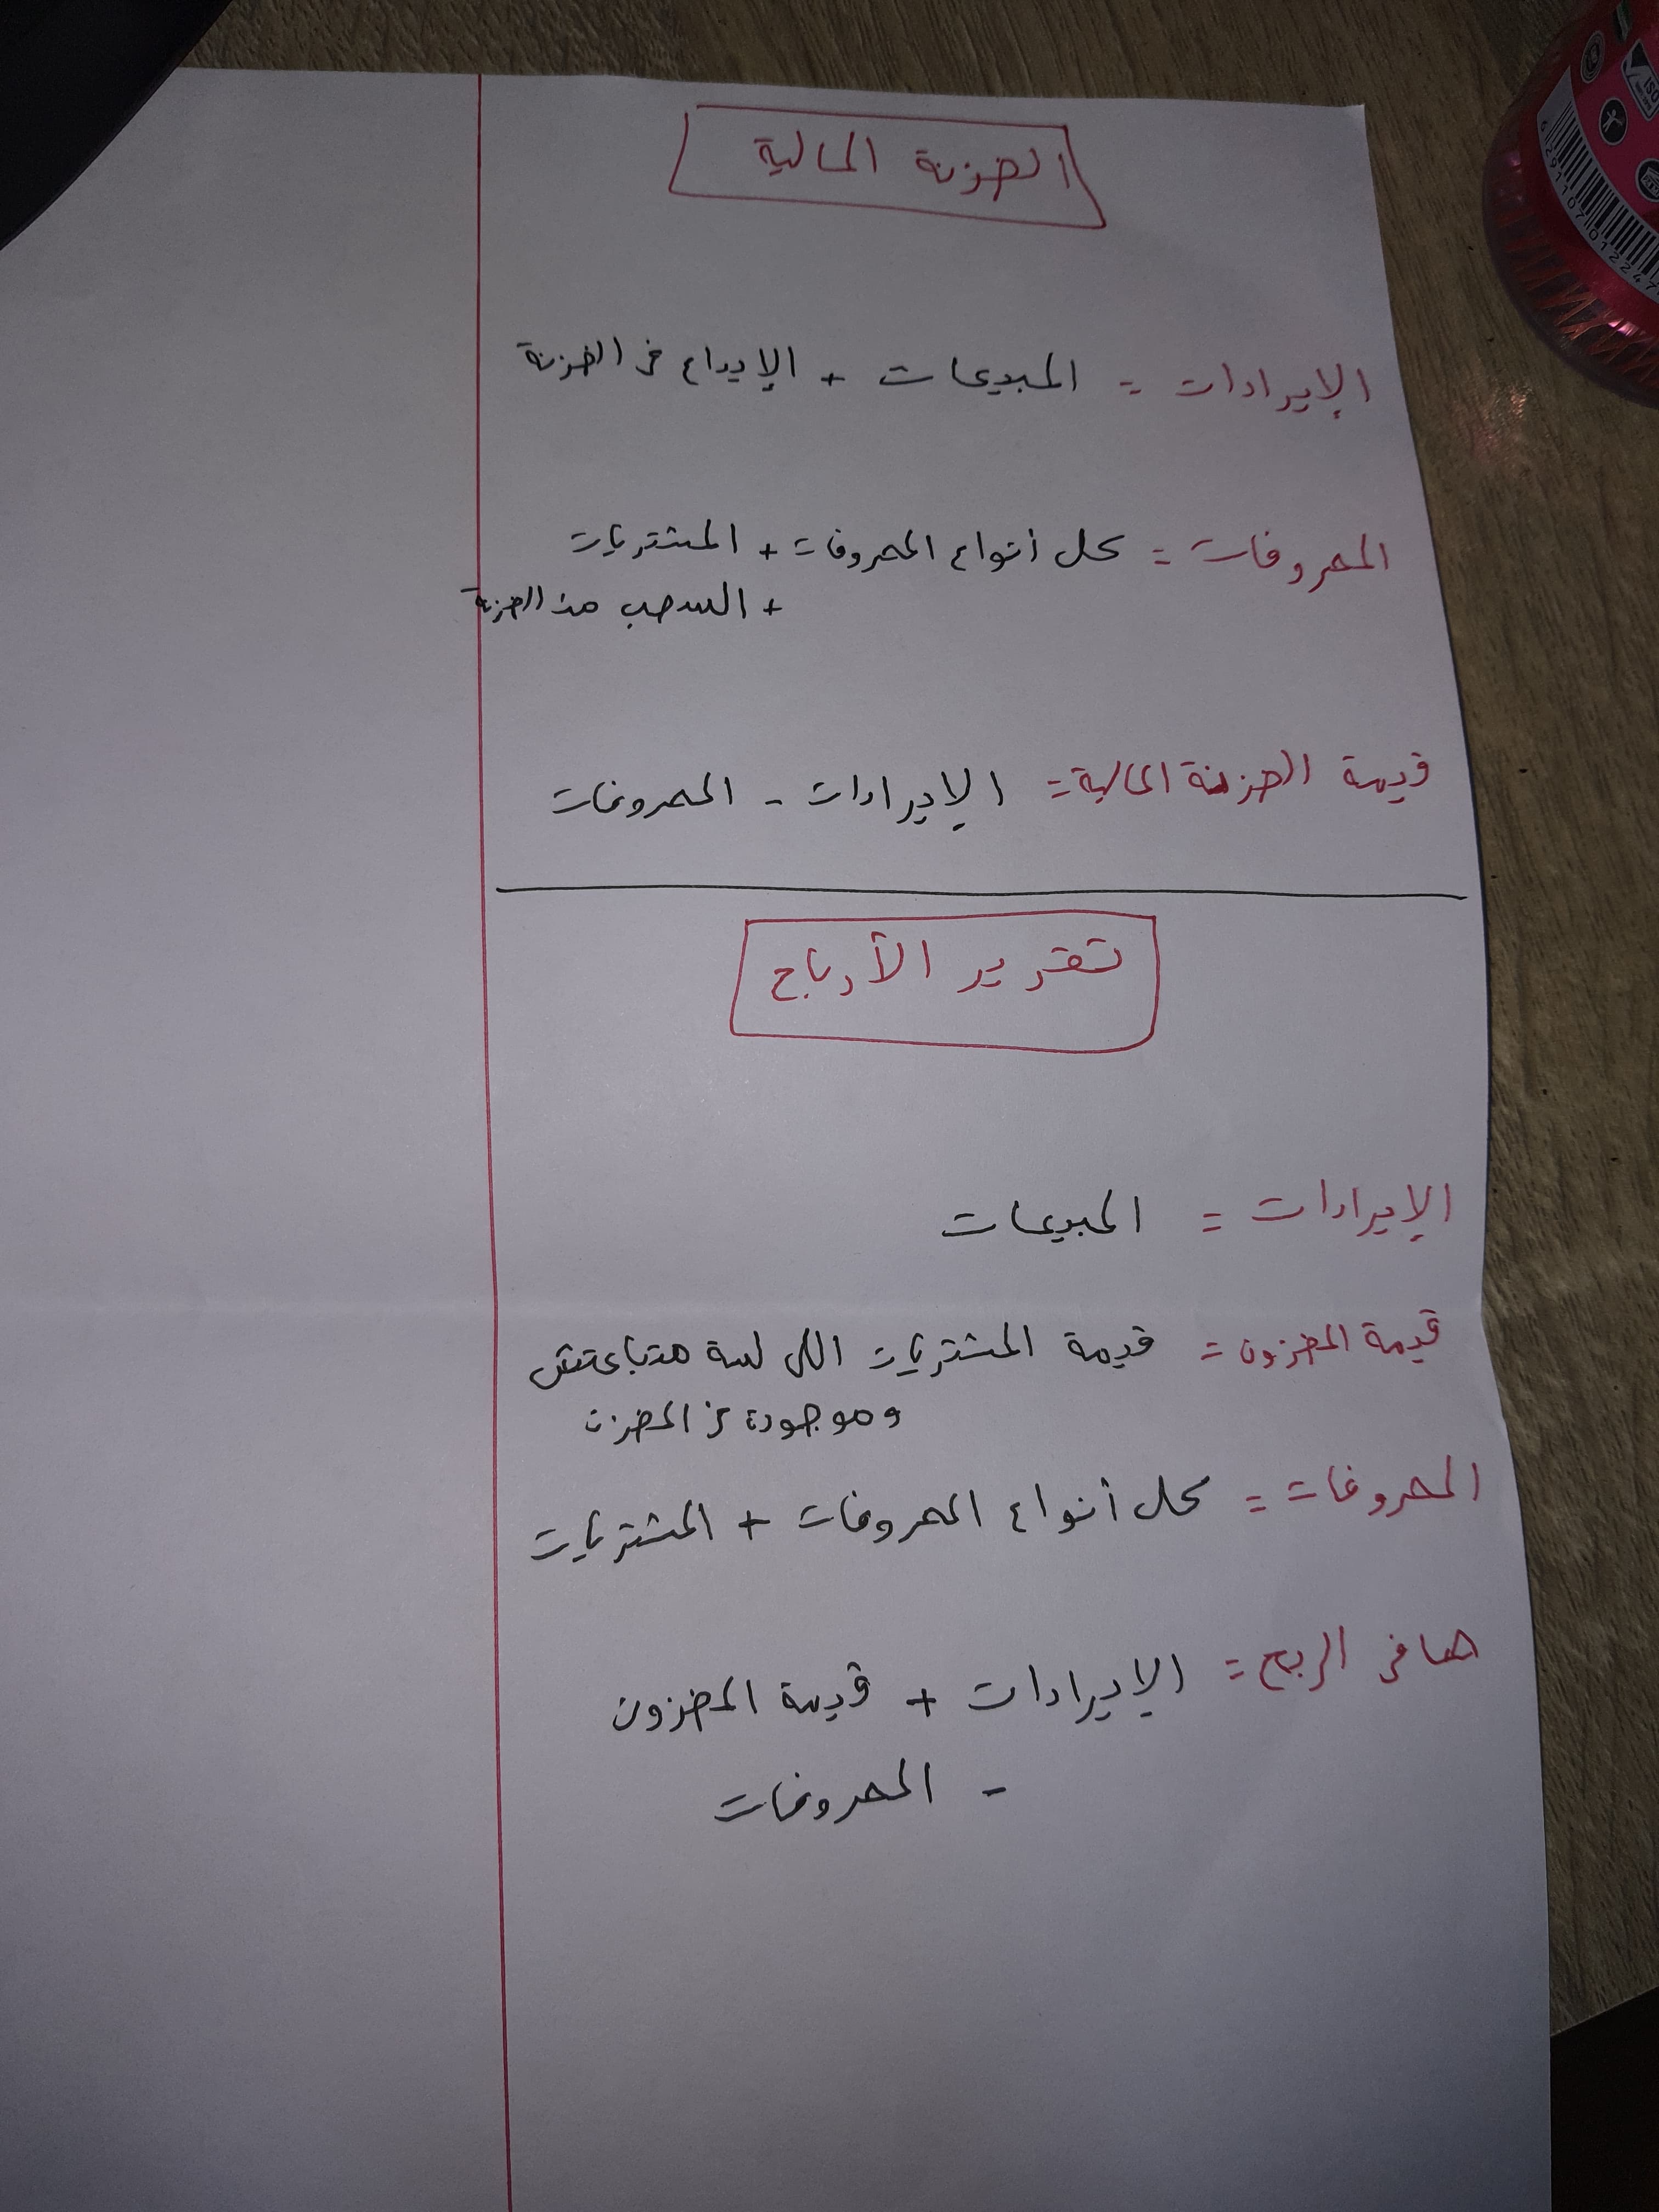 الخزنة المالية
الإيرادات = المبيعات + الإيداع في الخزنة
المصروفات = كل أنواع المصروفات + المشتريات
+ السحب من الخزنة
قيمة الخزنة المالية = الإيرادات - المصروفات
تقرير الأرباح
الإيرادات = المبيعات
قيمة المخزون = قيمة المشتريات اللي لسة متباعتش
وموجودة في المخزن
المصروفات = كل أنواع المصروفات + المشتريات
صافي الربح = الإيرادات + قيمة المخزون
- المصروفات
ISO